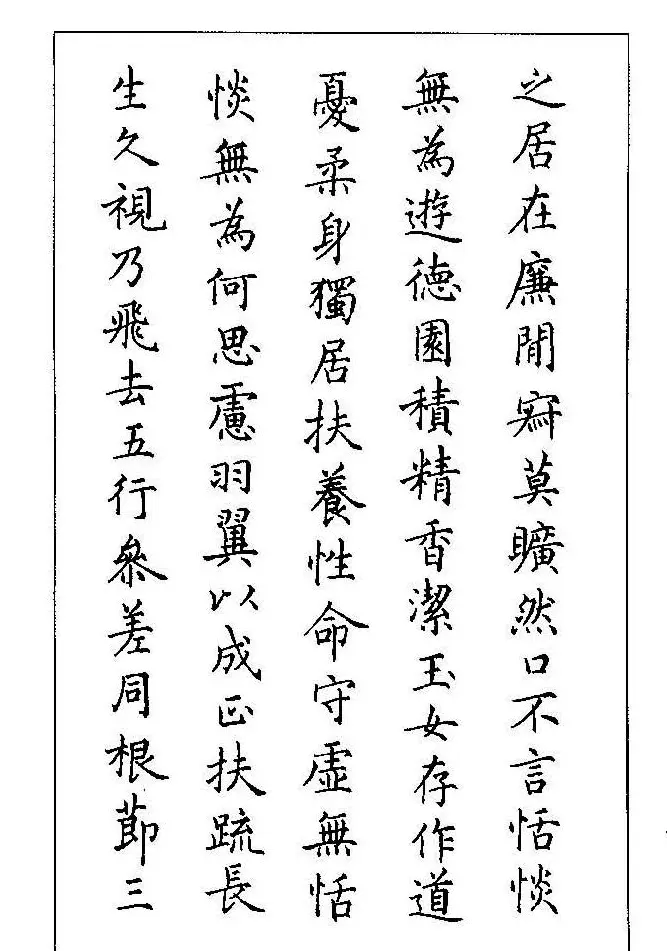 之居在廉閒寂莫曠然口不言恬惔
無為遊德園積精香潔玉女存作道
憂柔身獨居扶養性命守虛無恬
惔無為何思慮羽翼以成正扶疏長
生久視乃飛去五行參差同根節三